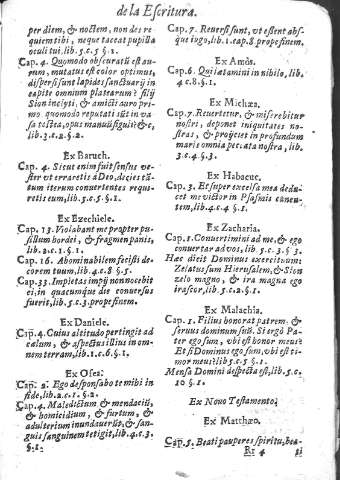 de la Escritura.
per diem, & noctem, non des re
quiem tibi, neque taceat pupilla
oculi tui, lib. 5. c. 5 §. 1.
Cap. 4. Quomodo obscuratū est au-
rum, mutatus est color optimus,
dispersi sunt lapides sanctuarij in
capite omnium platearum? filij
Sion inclyti, & amicti auro pri
mo quomodo reputati sūt in va
sa testea, opus manuū figuli? &c,
lib. 3. c. 2. §. 2.
Ex Baruch.
Cap. 4. Sicut enim fuit sensus ve-
ster vt erraretis à Deo, decies tā-
tum iterum conuertentes requi-
retis eum, lib. 5. c. 5. §. 1.
Ex Ezechiele.
Cap. 13. Violabant me propter pu-
gillum hordei, & fragmen panis,
lib. 2. c. 1. §. 1.
Cap. 16. Abominabilem fecisti de-
corem tuum, lib. 4. c. 8 §. 5.
Cap. 33. Impietas impij non nocebit
ei, in quacumque die conuersus
fuerit, lib. 5. c. 3. prope finem.
Ex Daniele.
Cap. 4. Cuius altitudo pertingit ad
cælum, & aspectus illius in om-
nem terram, lib. 1. c. 6. §. 1.
Ex Osea.
Cap. 2. Ego desponsabo te mihi in
fide, lib. 2. c. 2. §. 1.
Cap. 4. Maledictum & mendaciū,
& homicidium, & furtum, &
adulterium inundauerūt, & san-
guis sanguinem tetigit, lib. 4. c. 3.
§. 1.
Cap. 7. Reuersi sunt, vt essent abs-
que iugo, lib. 1. cap. 8 prope finem.
Ex Amòs.
Cap. 6. Qui lætamini in nihilo, lib.
4 c. 8 §. 1.
Ex Michæa.
Cap. 7. Reuertetur, & miserebitur
nostri, deponet iniquitates no-
stras, & proijciet in profundum
maris omnia peccata nostra, lib.
3. c. 4 §. 3.
Ex Habacuc.
Cap. 3. Et super excelsa mea dedu-
cet me victor in Psalmis canen-
tem, lib. 4. c. 4 §. 1.
Ex Zacharia.
Cap. 1. Conuertimini ad me, & ego
conuertar ad vos, lib. 5. c. 3 §. 3
Hæc dicit Dominus exercituum:
Zelatus sum Hierusalem, & Sion
zelo magno, & ira magna ego
irascor, lib. 5. c. 2. §. 1.
Ex Malachia.
Cap. 1. Filius honorat patrem, &
seruus dominum suū. Si ergo Pa-
ter ego sum, vbi est honor meus?
Et si Dominus ego sum, vbi est ti-
mor meus? lib 5. c. 5 §. 1.
Mensa Domini despecta est, lib. 5. c.
10 §. 1.
Ex Nouo Testamento.
Ex Matthæo.
Cap. 5. Beati pauperes spiritu, bea-
Rr 4